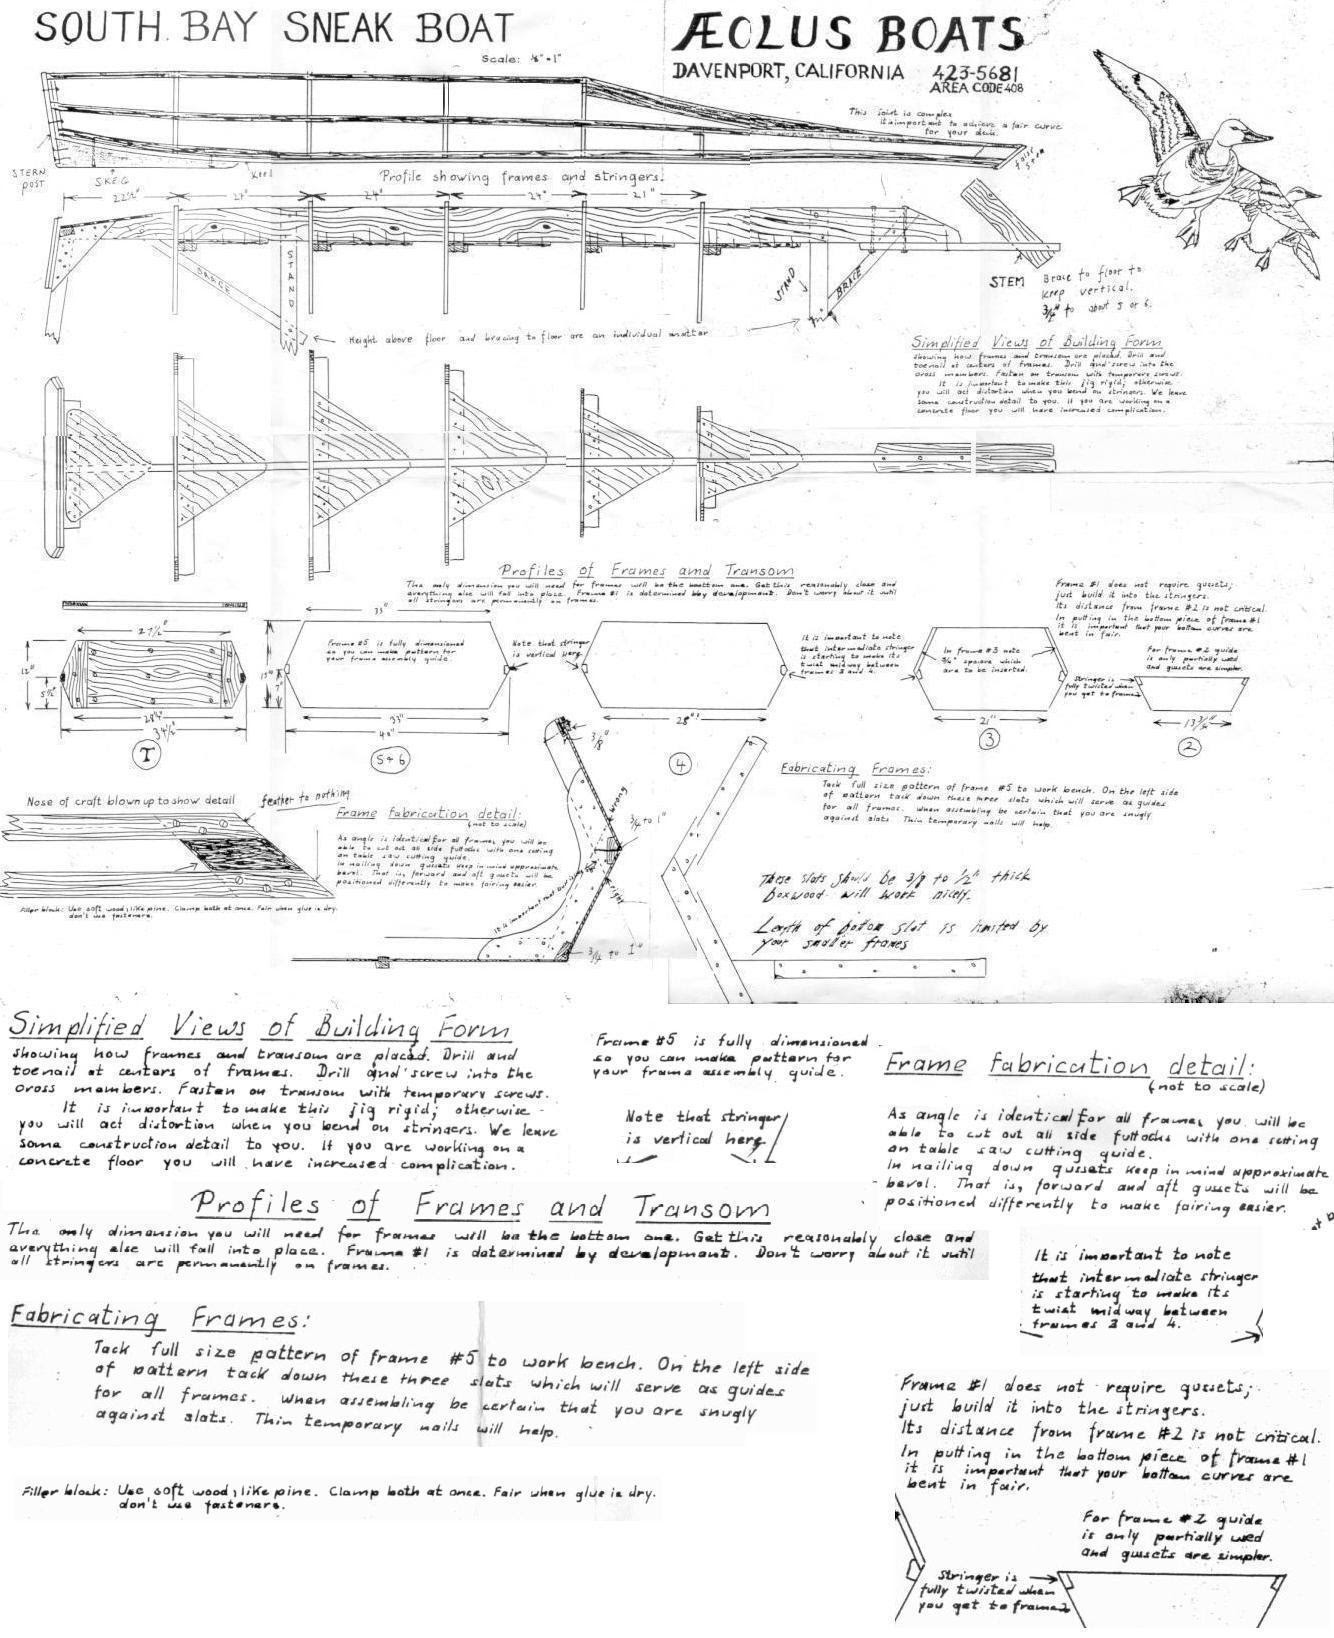 SOUTH BAY SNEAK BOAT
Scale: ⅛"=1"
ÆOLUS BOATS
DAVENPORT, CALIFORNIA 423-5681
AREA CODE 408
This joint is complex
it is important to achieve a fair curve
for your deck.
false stem
STERN
POST
SKEG
Keel
Profile showing frames and stringers.
22½"
24"
24"
24"
21"
BRACE
STAND
STAND
BRACE
STEM
Brace to floor to
keep vertical.
¾" to about 5 or 6.
Height above floor and bracing to floor are an individual matter
Simplified Views of Building Form
showing how frames and transom are placed. Drill and
toenail at centers of frames. Drill and screw into the
cross members. Fasten on transom with temporary screws.
It is important to make this jig rigid; otherwise
you will get distortion when you bend on stringers. We leave
some construction detail to you. If you are working on a
concrete floor you will have increased complication.
Profiles of Frames and Transom
The only dimension you will need for frames will be the bottom one. Get this reasonably close and
everything else will fall into place. Frame #1 is determined by development. Don't worry about it until
all stringers are permanently on frames.
Frame #1 does not require gussets;
just build it into the stringers.
Its distance from frame #2 is not critical.
In putting in the bottom piece of frame #1
it is important that your bottom curves are
bent in fair.
27½"
12"
5½"
28¼"
34½"
T
33"
Frame #5 is fully dimensioned
so you can make pattern for
your frame assembly guide.
7"
33"
40"
5+6
Note that stringer
is vertical here
28"
4
It is important to note
that intermediate stringer
is starting to make its
twist midway between
frames 3 and 4.
In frame #3 note
¾" spaces which
are to be inserted.
21"
3
For frame #2 guide
is only partially used
and gussets are simpler.
Stringer is
fully twisted when
you get to frame 2
13¾"
2
Nose of craft blown up to show detail
feather to nothing
Filler block: Use soft wood, like pine. Clamp both at once. Fair when glue is dry.
don't use fasteners.
Frame Fabrication detail:
(not to scale)
As angle is identical for all frames you will be
able to cut out all side futtocks with one setting
on table saw cutting guide.
In nailing down gussets keep in mind approximate
bevel. That is, forward and aft gussets will be
positioned differently to make fairing easier.
3/8"
wrong
¾ to 1"
right
¾ to 1"
Fabricating Frames:
Tack full size pattern of frame #5 to work bench. On the left side
of pattern tack down these three slats which will serve as guides
for all frames. When assembling be certain that you are snugly
against slats. Thin temporary nails will help.
These slats should be 3/8 to 1/2" thick
boxwood will work nicely.
Length of bottom slot is limited by
your smaller frames
Simplified Views of Building Form
showing how frames and transom are placed. Drill and
toenail at centers of frames. Drill and screw into the
cross members. Fasten on transom with temporary screws.
It is important to make this jig rigid; otherwise
you will get distortion when you bend on stringers. We leave
some construction detail to you. If you are working on a
concrete floor you will have increased complication.
Frame #5 is fully dimensioned
so you can make pattern for
your frame assembly guide.
Note that stringer
is vertical here
Frame Fabrication detail:
(not to scale)
As angle is identical for all frames you will be
able to cut out all side futtocks with one setting
on table saw cutting guide.
In nailing down gussets keep in mind approximate
bevel. That is, forward and aft gussets will be
positioned differently to make fairing easier.
Profiles of Frames and Transom
The only dimension you will need for frames will be the bottom one. Get this reasonably close and
everything else will fall into place. Frame #1 is determined by development. Don't worry about it until
all stringers are permanently on frames.
It is important to note
that intermediate stringer
is starting to make its
twist midway between
frames 3 and 4.
Fabricating Frames:
Tack full size pattern of frame #5 to work bench. On the left side
of pattern tack down these three slats which will serve as guides
for all frames. When assembling be certain that you are snugly
against slats. Thin temporary nails will help.
Frame #1 does not require gussets;
just build it into the stringers.
Its distance from frame #2 is not critical.
In putting in the bottom piece of frame #1
it is important that your bottom curves are
bent in fair.
Filler block: Use soft wood, like pine. Clamp both at once. Fair when glue is dry.
don't use fasteners.
For frame #2 guide
is only partially used
and gussets are simpler.
Stringer is
fully twisted when
you get to frame 2